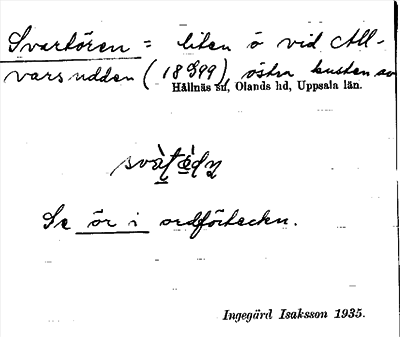 Svartören = liten ö vid All-
varsudden (18 G 99), östra kusten av
Hållnäs sn, Olands hd, Uppsala län.
Se ör i ordförteckn.
Ingegärd Isaksson 1935.